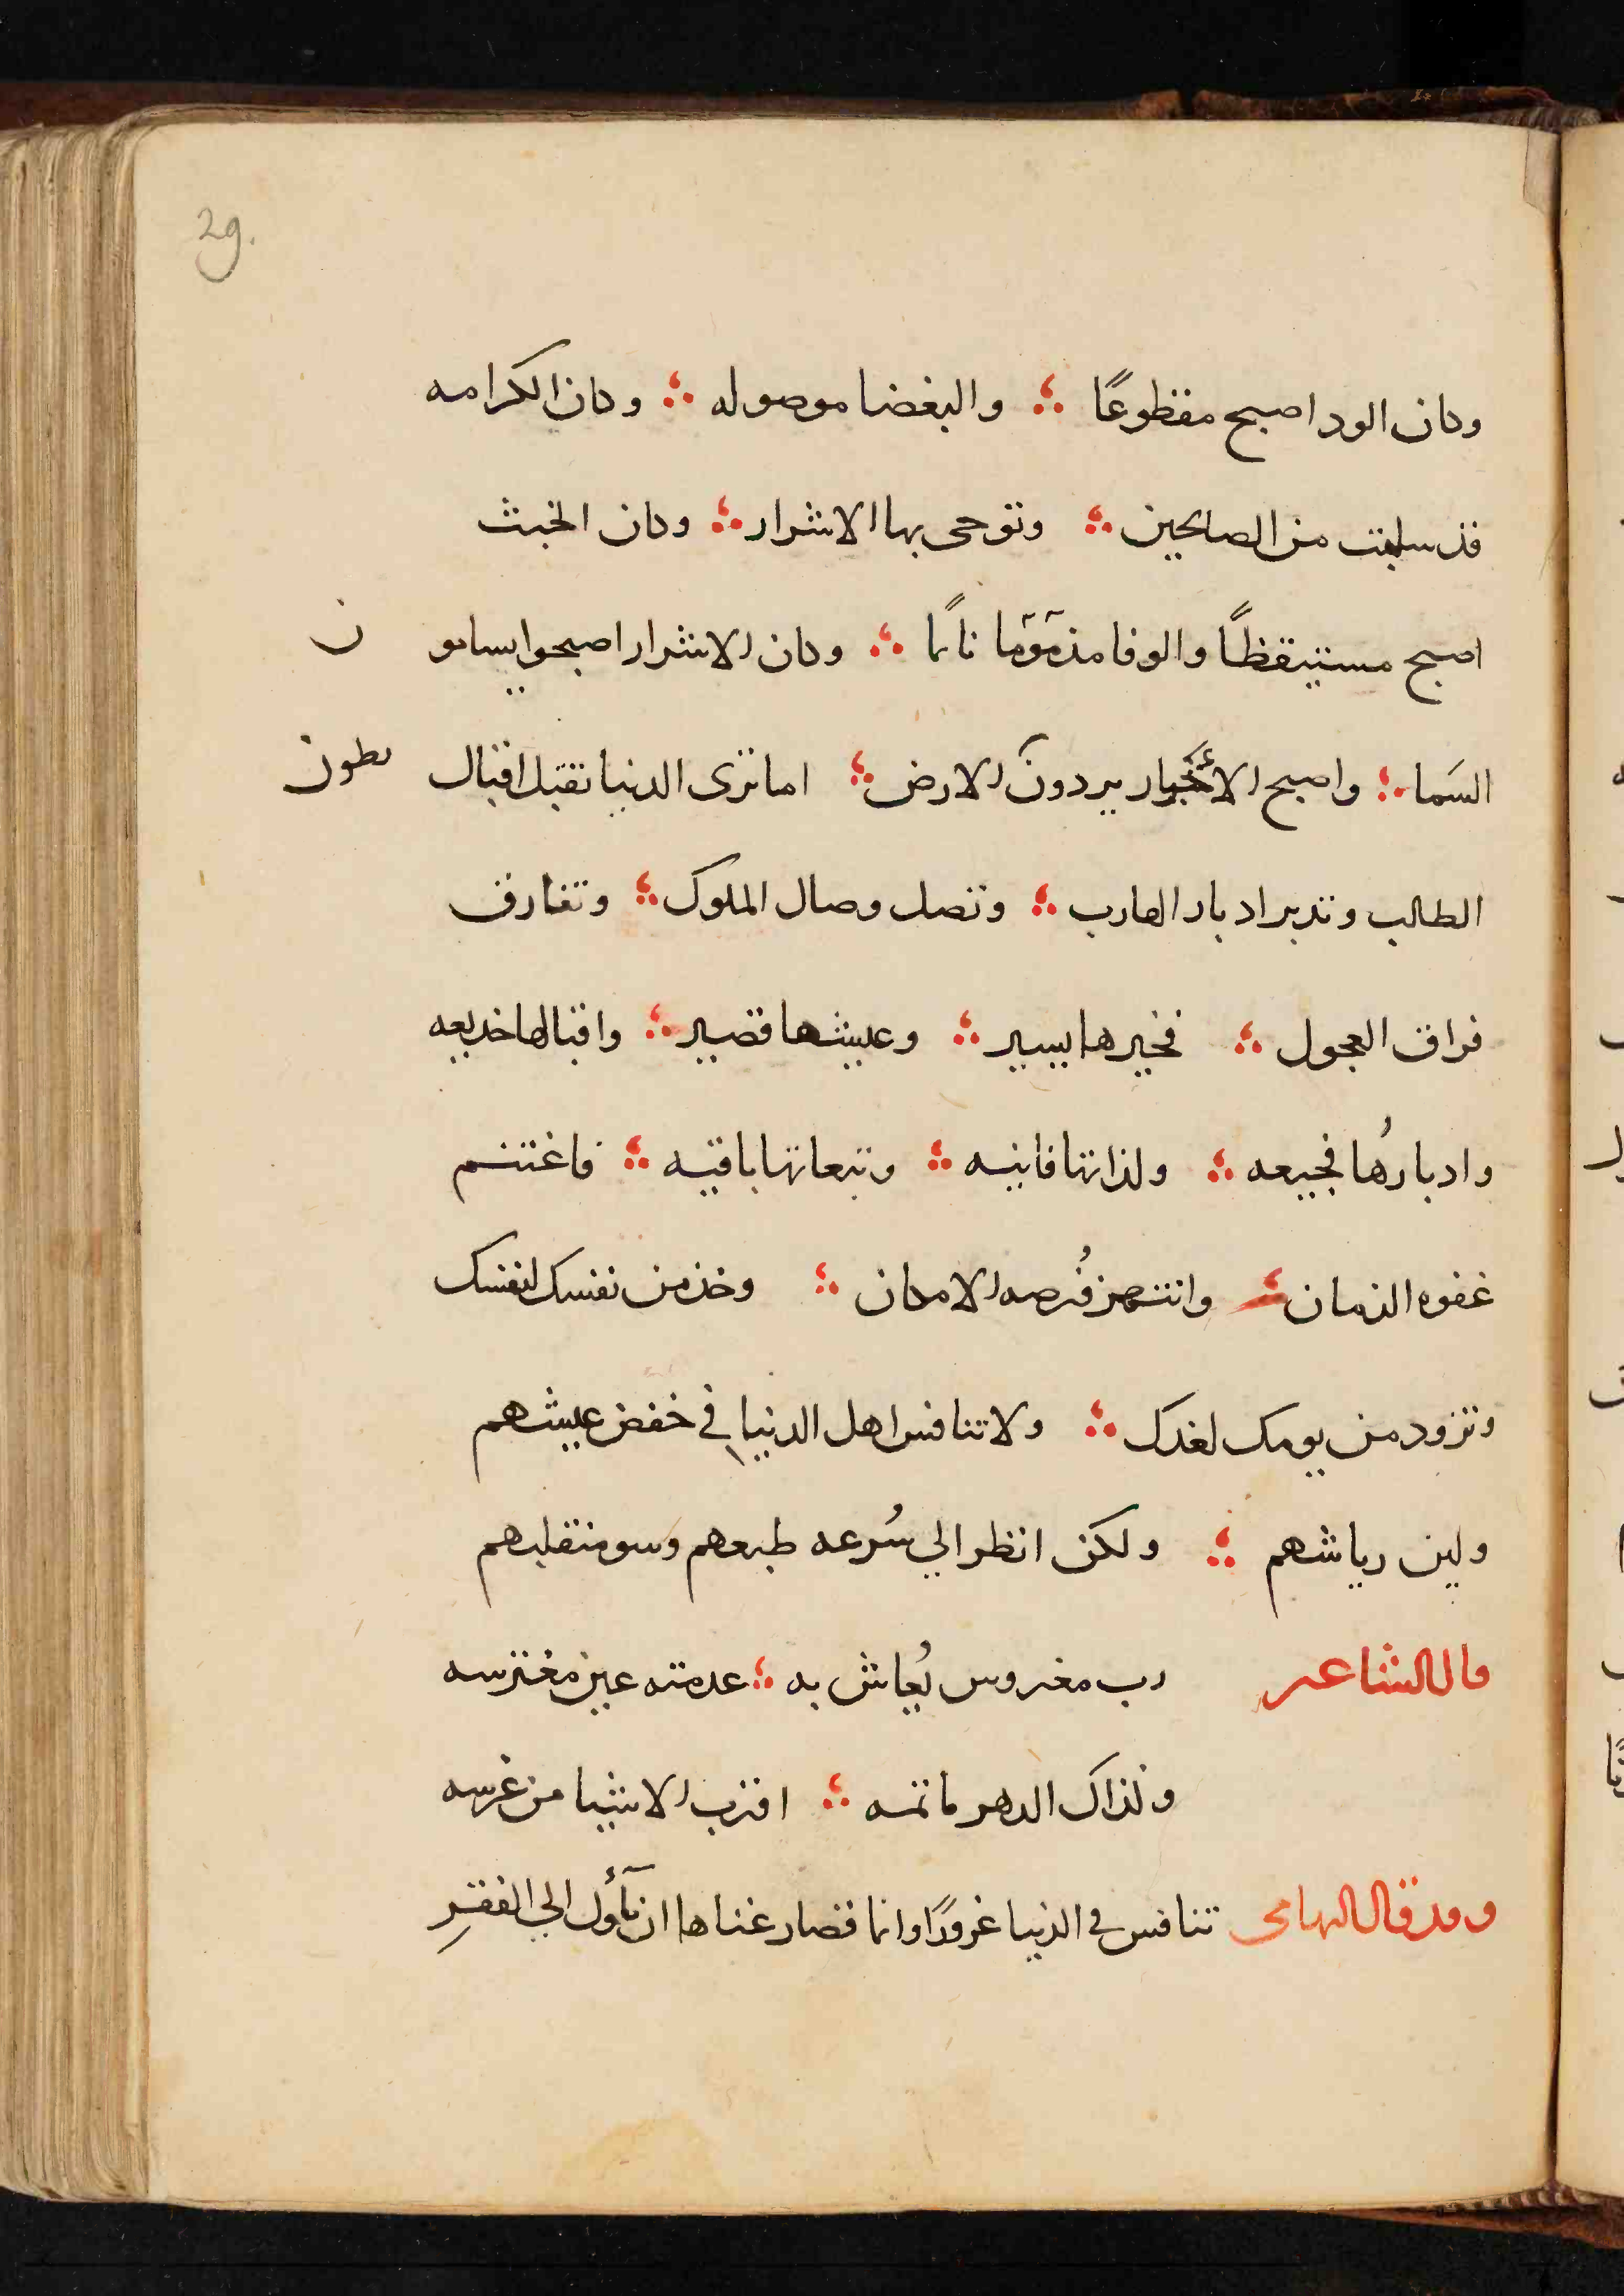 29.
وكان الود اصبح مقطوعًا ؞ والبغضا موصوله ؞ وكان الكرامه
قد سلبت من الصالحين ؞ وتوحى بها الاشرار ؞ وكان الخبث
اصبح مستيقظًا والوفا نائمًا ؞ وكان الاشرار اصبحوا يسامو ن
السَما ؞ واصبح الاخيار يردونَ الارض ؞ اما ترى الدنيا تقبل اقبال
بطون
الطالب وتدبر ادبار الهارب ؞ وتصل وصال الملوك ؞ وتفارق
فراق العجول ؞ فخيرها يسير ؞ وعيشها قصير ؞ واقبالها خديعه
وادبارُها فجيعه ؞ ولذاتها فانيه ؞ وتبعاتها باقيه ؞ فاغتنم
غفوه الزمان ؞ وانتهز فُرصه الامكان ؞ وخذ من نفسك لنفسك
وتزود من يومك لغدك ؞ ولا تنافس اهل الدنيا في خفض عيشهم
ولين رياشهم ؞ ولكن انظر الي سُرعه وسو منقلبهم
قال الشاعر رب مغروس يُعاش به ؞ عدمته عين مغترسه
وكذاك الدهر ماتمه ؞ اقرب الاشيا من عرسه
وقد قال التهامى تنافس في الدنيا غرورًا وانما قصار غناها ان يأول الي الفقرِ